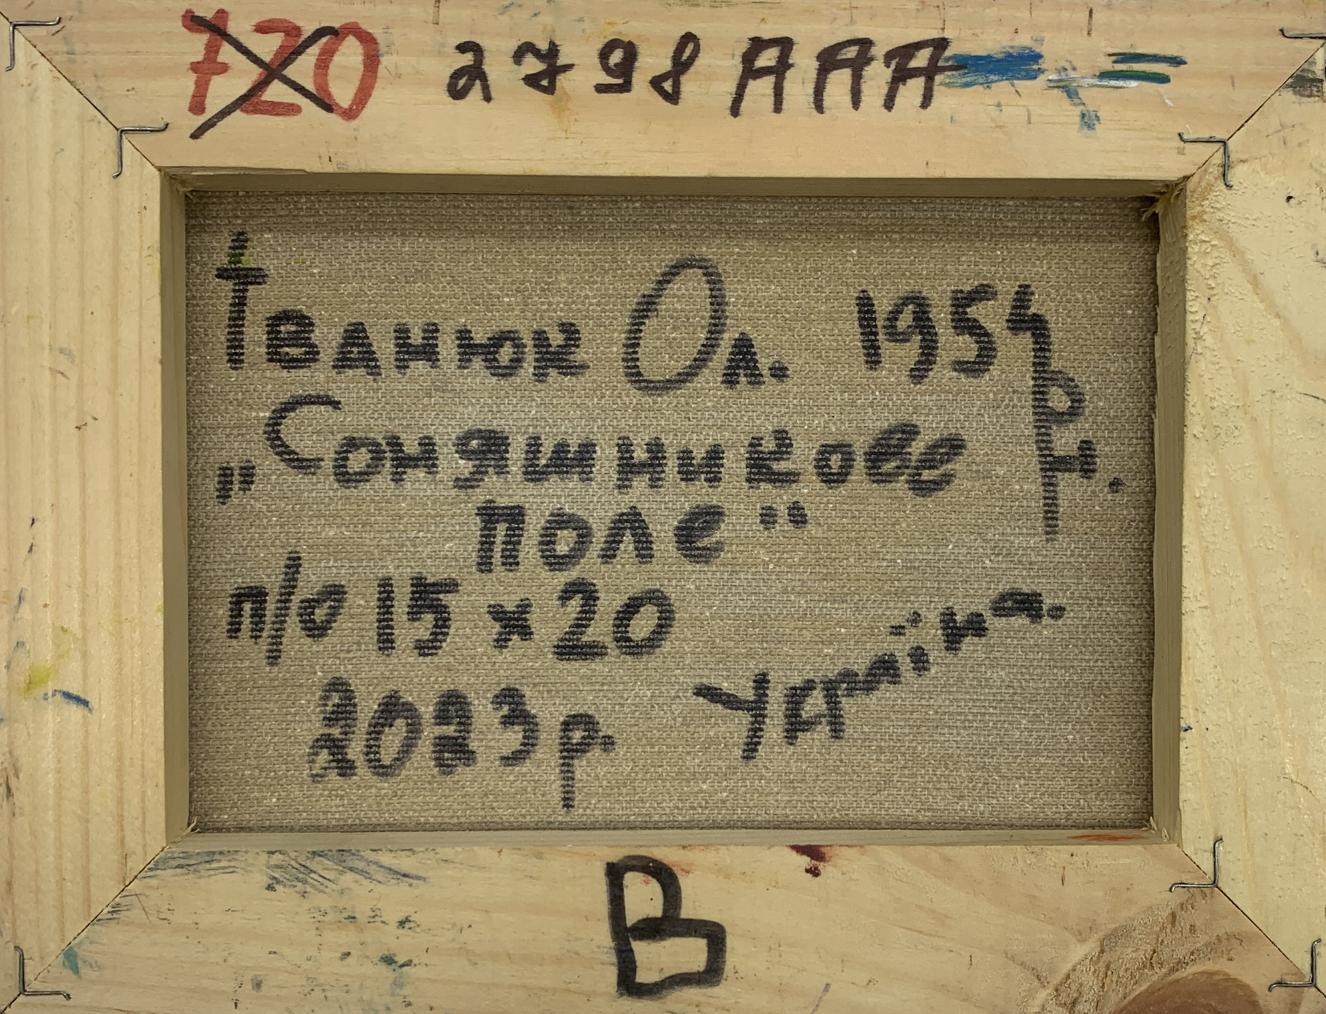 720 2798 AAA
Іванюк Ол. 1954 р.н.
„Соняшникове
поле“
п/о 15 x 20
2023 р. Україна.
В